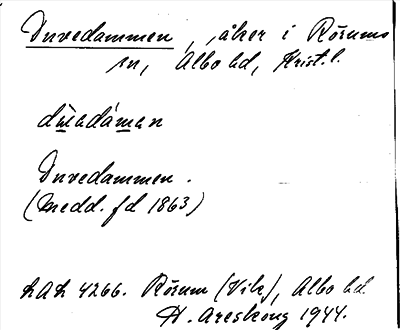 Duvedammen, åker i Rörums
sn, Albo hd, Krist. l.
Duvedammen.
(Medd. fd 1863)
LAL 4266. Rörum (Vik), Albo hd.
H. Areskoug 1944.